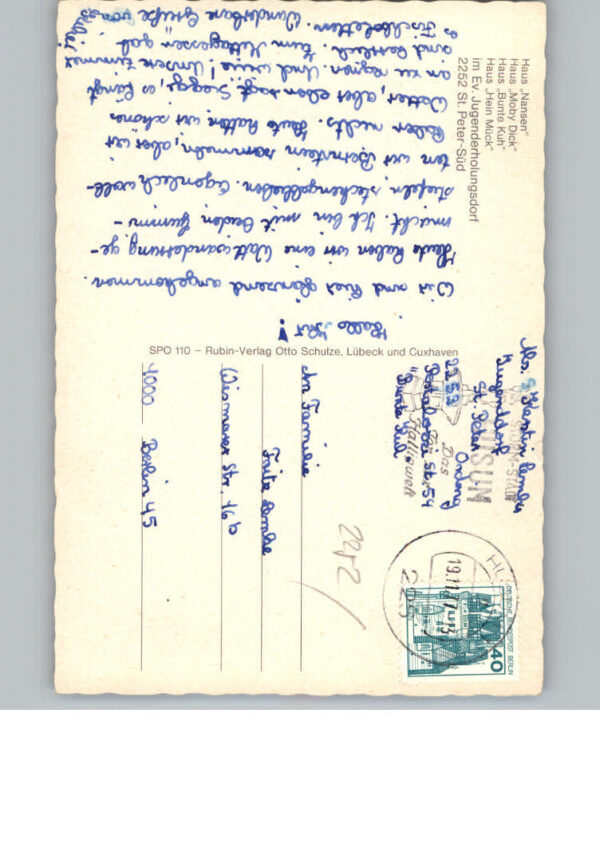 Haus „Nansen“
Haus „Moby Dick“
Haus „Bunte Kuh“
Haus „Hein Mück“
im Ev. Jugenderholungsdorf
2252 St. Peter-Süd
Hallo Ihr!
Wir sind hier glänzend angekommen.
Heute haben wir eine Wattwanderung ge-
macht. Ich bin mit beiden Gummi-
stiefeln steckengeblieben. Eigentlich woll-
ten wir Bernstein sammeln, aber wir
haben nichts. Heute hatten wir schönes
Wetter, aber eben sagt Svaggi, es fängt
an zu regnen. Und wie! Unsere Zimmer
sind herrlich. Zum Mittagessen gab
es Fischbuletten. Wunderbare Grüße von
SPO 110 – Rubin-Verlag Otto Schulze, Lübeck und Cuxhaven
Abs. Kerstin
Jugenddorf
St. Peter
Ording
2252
Pestalozzi Str. 54
"Bunte Kuh"
An Familie
Fritz
Wismarer Str. 46b
1000 Berlin 45
2252
HUSUM
STORM-STADT
Das
Tor zur
Halligwelt
225
19.11.77-13
DEUTSCHE BUNDESPOST BERLIN
40